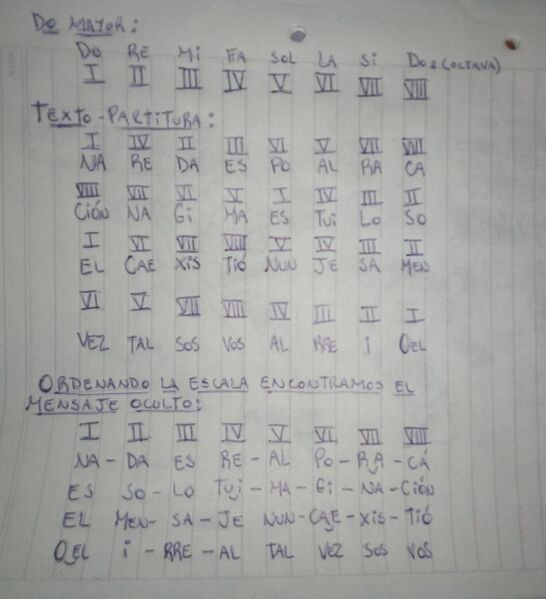 DO MAYOR:
DO RE Mi FA SOL LA Si DO 2 (OCTAVA)
I II III IV V VI VII VIII
TEXTO-PARTITURA:
I IV II III VI V VII VIII
NA RE DA ES PO AL RA CA
VIII VII VI V I IV III II
CióN NA Gi MA ES Tui LO SO
I VI VII VIII V IV III II
EL CAE XiS Tió NUN JE SA MEN
VI V VII VIII IV III II I
VEZ TAL SOS VOS AL RRE i OEL
ORDENANDO LA ESCALA ENCONTRAMOS EL
MENSAJE OCULTO:
I II III IV V VI VII VIII
NA-DA ES RE-AL PO-RA-CÁ
ES SO-LO Tui-MA-Gi-NA-CióN
EL MEN-SA-JE NUN-CAE-XiS-Tió
O EL i-RRE-AL TAL VEZ SOS VOS